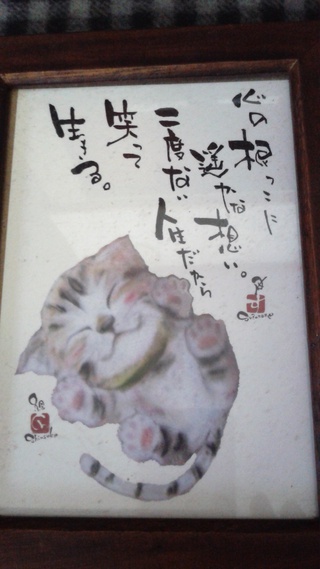 心の根っこに
遥かな想い。
二度ない人生だから
笑って
生きる。